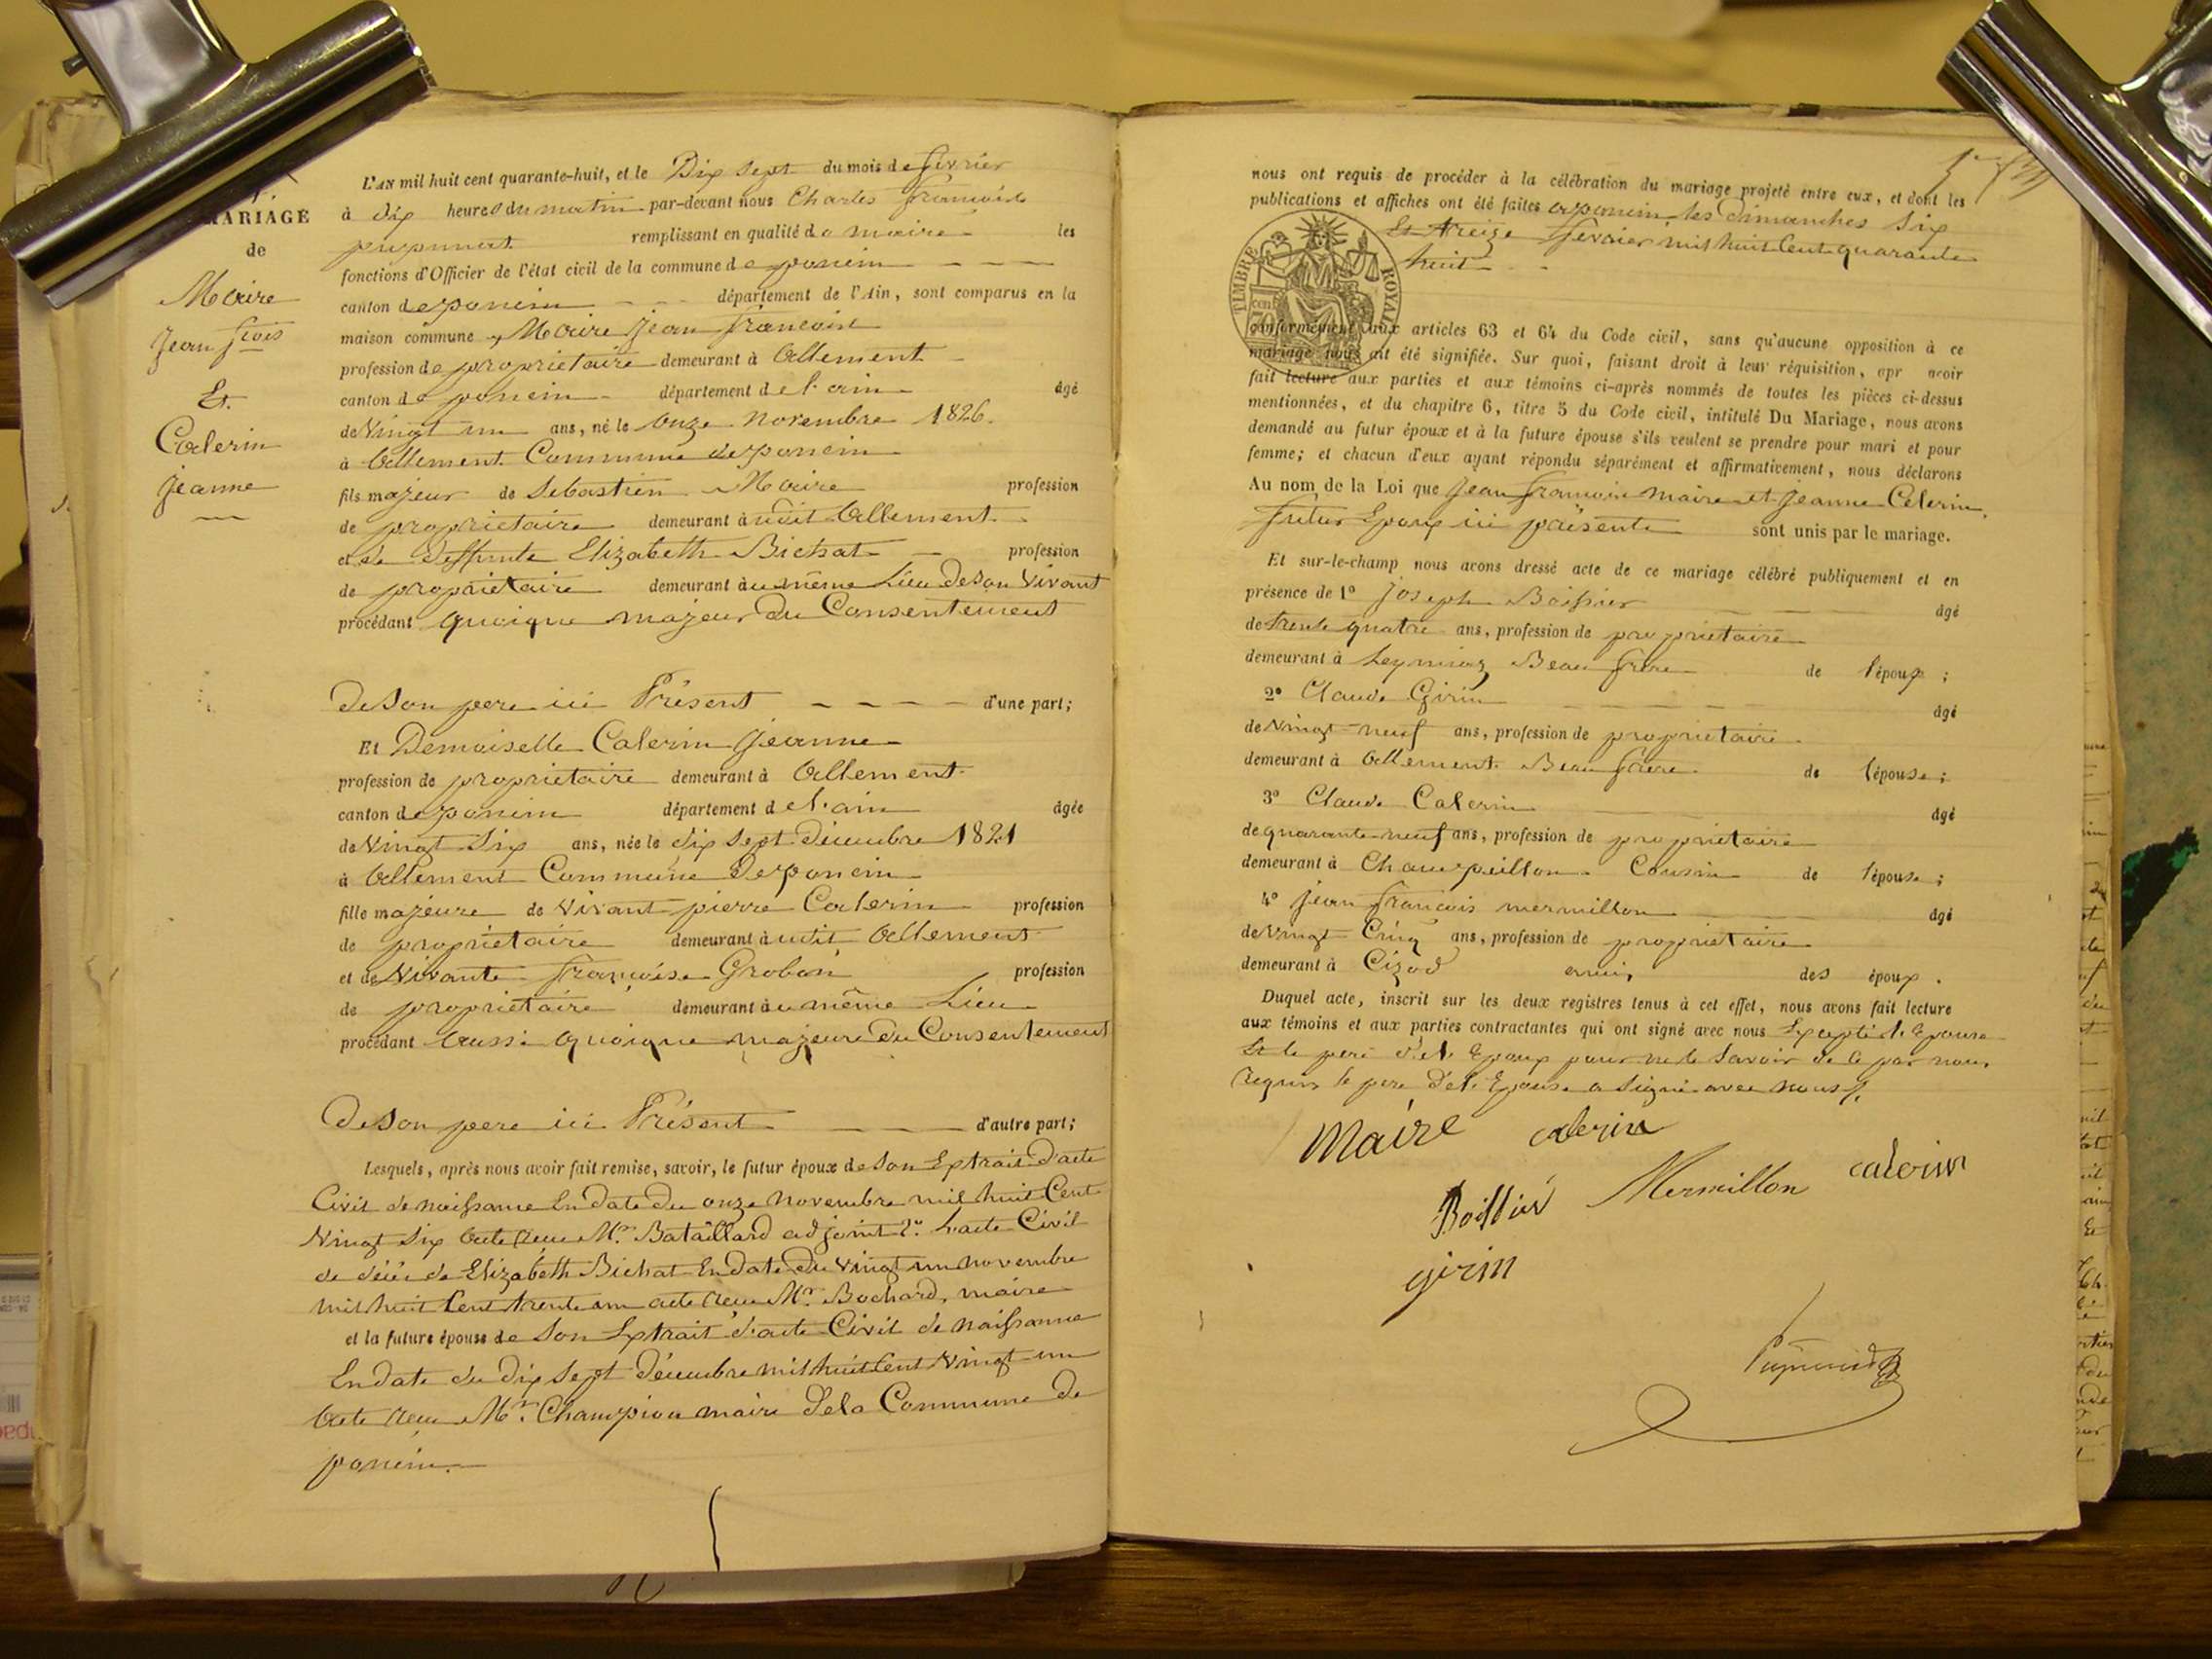 MARIAGE
de
Maire
Jean fcois
Et
Calerin
Jeanne
L'AN mil huit cent quarante-huit, et le Dix Sept du mois de fevrier
à dix heures du matin par-devant nous Charles francois
remplissant en qualité de maire les
fonctions d'Officier de l'état civil de la commune de poncin
canton de poncin département de l'Ain, sont comparus en la
maison commune Maire Jean francois
profession de proprietaire demeurant à Allement
canton de poncin département de l'ain âgé
de Vingt un ans, né le onze novembre 1826.
à Allement Commune de poncin
fils majeur de Sebastien Maire profession
de proprietaire demeurant à udit Allement
et de deffunte Elizabeth Bichat profession
de proprietaire demeurant au même Lieu de son Vivant
procédant quoique majeur du Consentement
de son pere ici Présent d'une part;
Et Demoiselle Calerin Jeanne
profession de proprietaire demeurant à Allement
canton de poncin département de l'ain âgée
de Vingt Six ans, née le dix sept decembre 1821
à Allement Commune de poncin
fille majeure de Vivant pierre Calerin profession
de proprietaire demeurant à udit Allement
et de Vivante françoise Grobon profession
de proprietaire demeurant au même Lieu
procédant aussi quoique majeure du Consentement
de son pere ici Présent d'autre part;
Lesquels, après nous avoir fait remise, savoir, le futur époux de son Extrait d'acte
Civil de naissance En date du onze novembre mil huit Cent
Vingt Six acte reçu Mr. Bataillard adjoint 2º. L'acte Civil
de décès de Elizabeth Bichat En date du Vingt un novembre
mil huit Cent trente un acte reçu Mr. Bochard, maire
et la future épouse de Son Extrait d'acte Civil de naissance
En date du dix Sept decembre mil huit Cent Vingt un
acte reçu Mr. Champion maire de la Commune de
poncin.
nous ont requis de procéder à la célébration du mariage projeté entre eux, et dont les
publications et affiches ont été faites a poncin les dimanches Six
Et treize fevrier mil huit Cent quarante
huit
TIMBRE ROYAL
conformément aux articles 63 et 64 du Code civil, sans qu'aucune opposition à ce
mariage nous ait été signifiée. Sur quoi, faisant droit à leur réquisition, apr avoir
fait lecture aux parties et aux témoins ci-après nommés de toutes les pièces ci-dessus
mentionnées, et du chapitre 6, titre 5 du Code civil, intitulé Du Mariage, nous avons
demandé au futur époux et à la future épouse s'ils veulent se prendre pour mari et pour
femme; et chacun d'eux ayant répondu séparément et affirmativement, nous déclarons
Au nom de la Loi que Jean francois maire et Jeanne Calerin,
futur Epoux ici présents sont unis par le mariage.
Et sur-le-champ nous avons dressé acte de ce mariage célébré publiquement et en
présence de 1º Joseph Boissier âgé
de trente quatre ans, profession de proprietaire
demeurant à Leymiaz Beau frere de l'époux;
2º Claude Girin âgé
de Vingt neuf ans, profession de proprietaire
demeurant à Allement Beau frere de l'épouse;
3º Claude Calerin âgé
de quarante neuf ans, profession de proprietaire
demeurant à Champeillon Cousin de l'épouse;
4º Jean francois mermillon âgé
de Vingt Cinq ans, profession de proprietaire
demeurant à Cizod amis des époux.
Duquel acte, inscrit sur les deux registres tenus à cet effet, nous avons fait lecture
aux témoins et aux parties contractantes qui ont signé avec nous Excepté l'Epouse
Et le pere de l'Epoux pour ne le Savoir de ce par nous
requis le pere de l'Epouse a signé avec nous
Maire calerin
Mermillon calerin
Boissier
girin